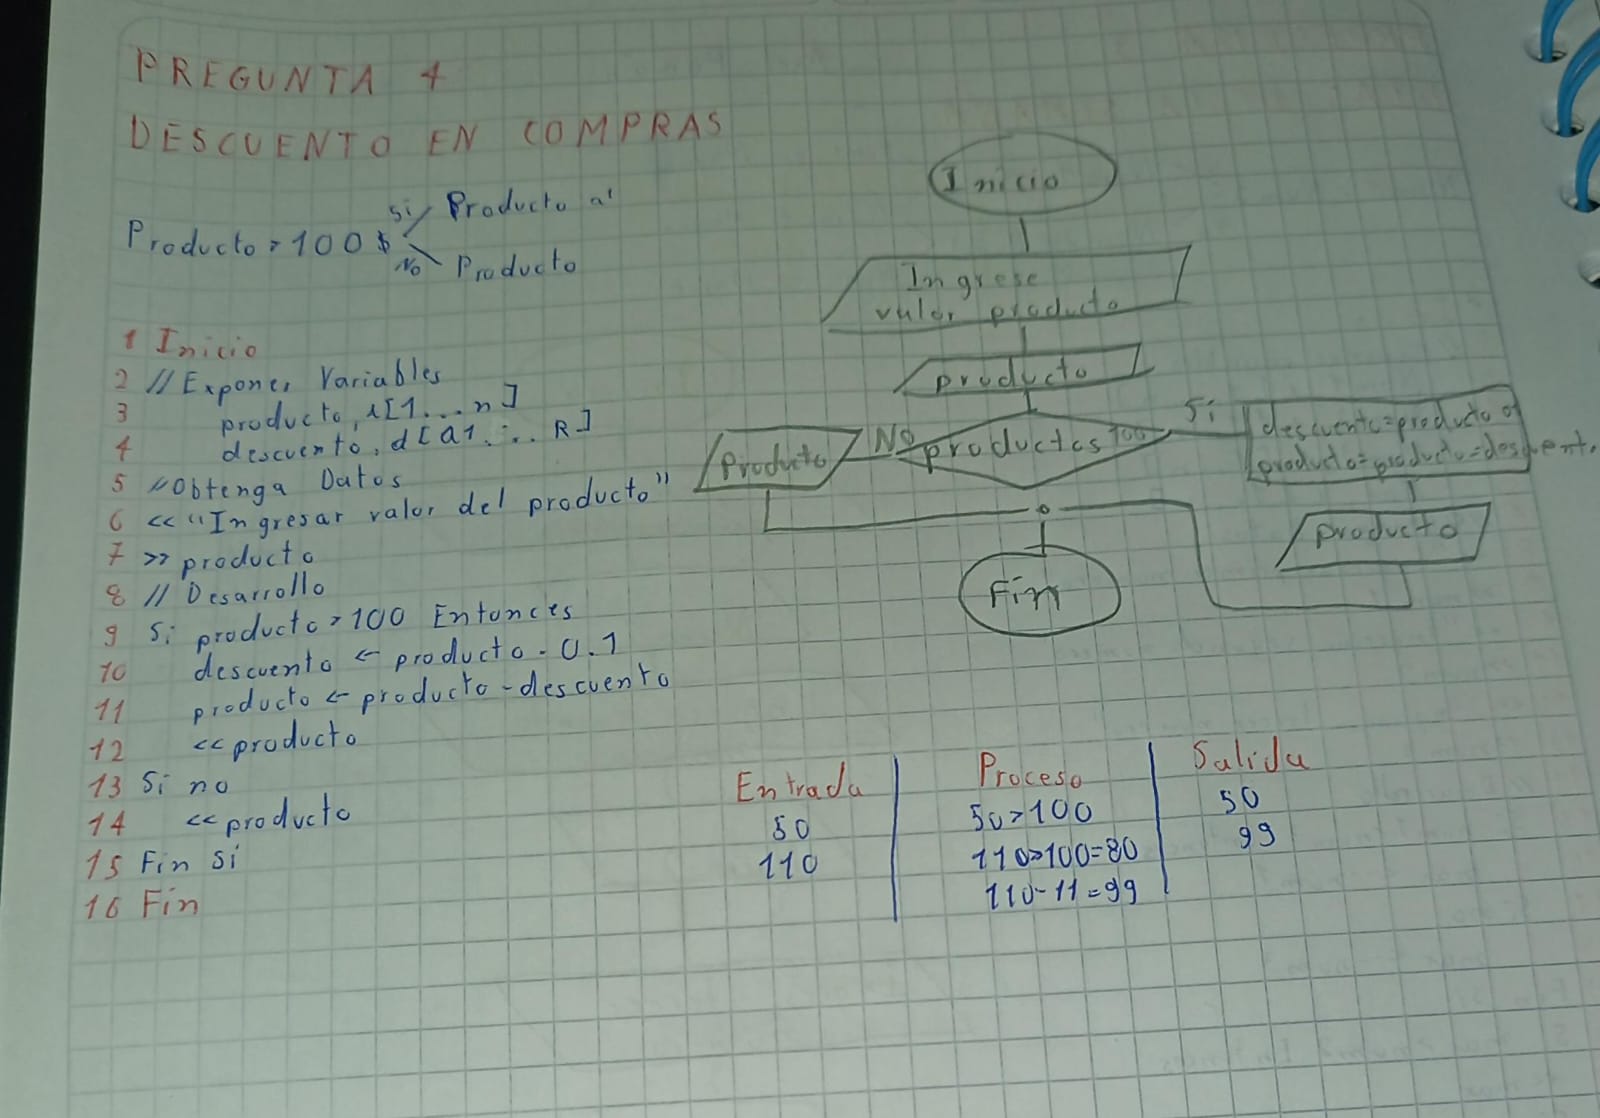 PREGUNTA 4
DESCUENTO EN COMPRAS
Producto > 100 $
Si Producto
No Producto
1 Inicio
2 // Exponer Variables
3 producto, i[1...n]
4 descuento, d[01... R]
5 //Obtenga Datos
6 << "Ingresar valor del producto"
7 >> producto
8 // Desarrollo
9 Si producto > 100 Entonces
10 descuento ← producto . 0.1
11 producto ← producto - descuento
12 << producto
13 Si no
14 << producto
15 Fin Si
16 Fin
Inicio
Ingrese
valor producto
producto
producto > 100
Si
No
Producto
descuento=producto
producto=producto=descuent.
producto
Fin
Entrada Proceso Salida
50 50>100 50
110 110>100=80 99
110-11=99